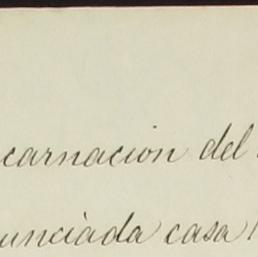 carnacion del
unciada casa